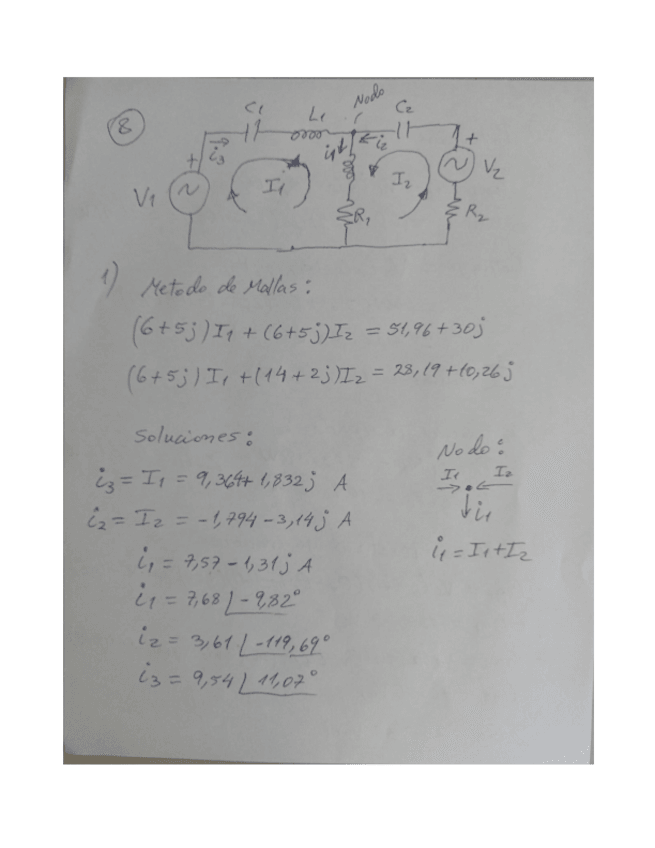 8
C1
L1
Nodo
C2
i3
i1
i2
+
V1
I1
I2
+
V2
R1
R2
1) Metodo de Mallas:
(6+5j)I1 + (6+5j)I2 = 51,96+30j
(6+5j)I1 + (14+2j)I2 = 28,19+10,26j
Soluciones:
i3 = I1 = 9,364+1,832j A
i2 = I2 = -1,794-3,14j A
i1 = 7,57-1,31j A
i1 = 7,68∠-9,82°
i2 = 3,61∠-119,69°
i3 = 9,54∠11,07°
Nodo:
I1 I2
i1
i1 = I1+I2